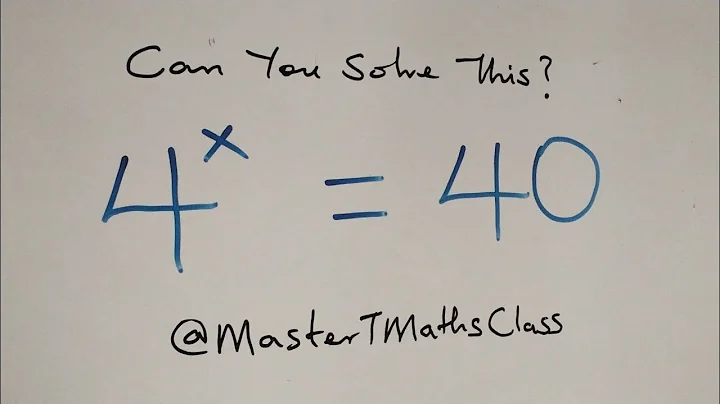 Can You Solve This?
4ˣ = 40
@MasterTMathsClass